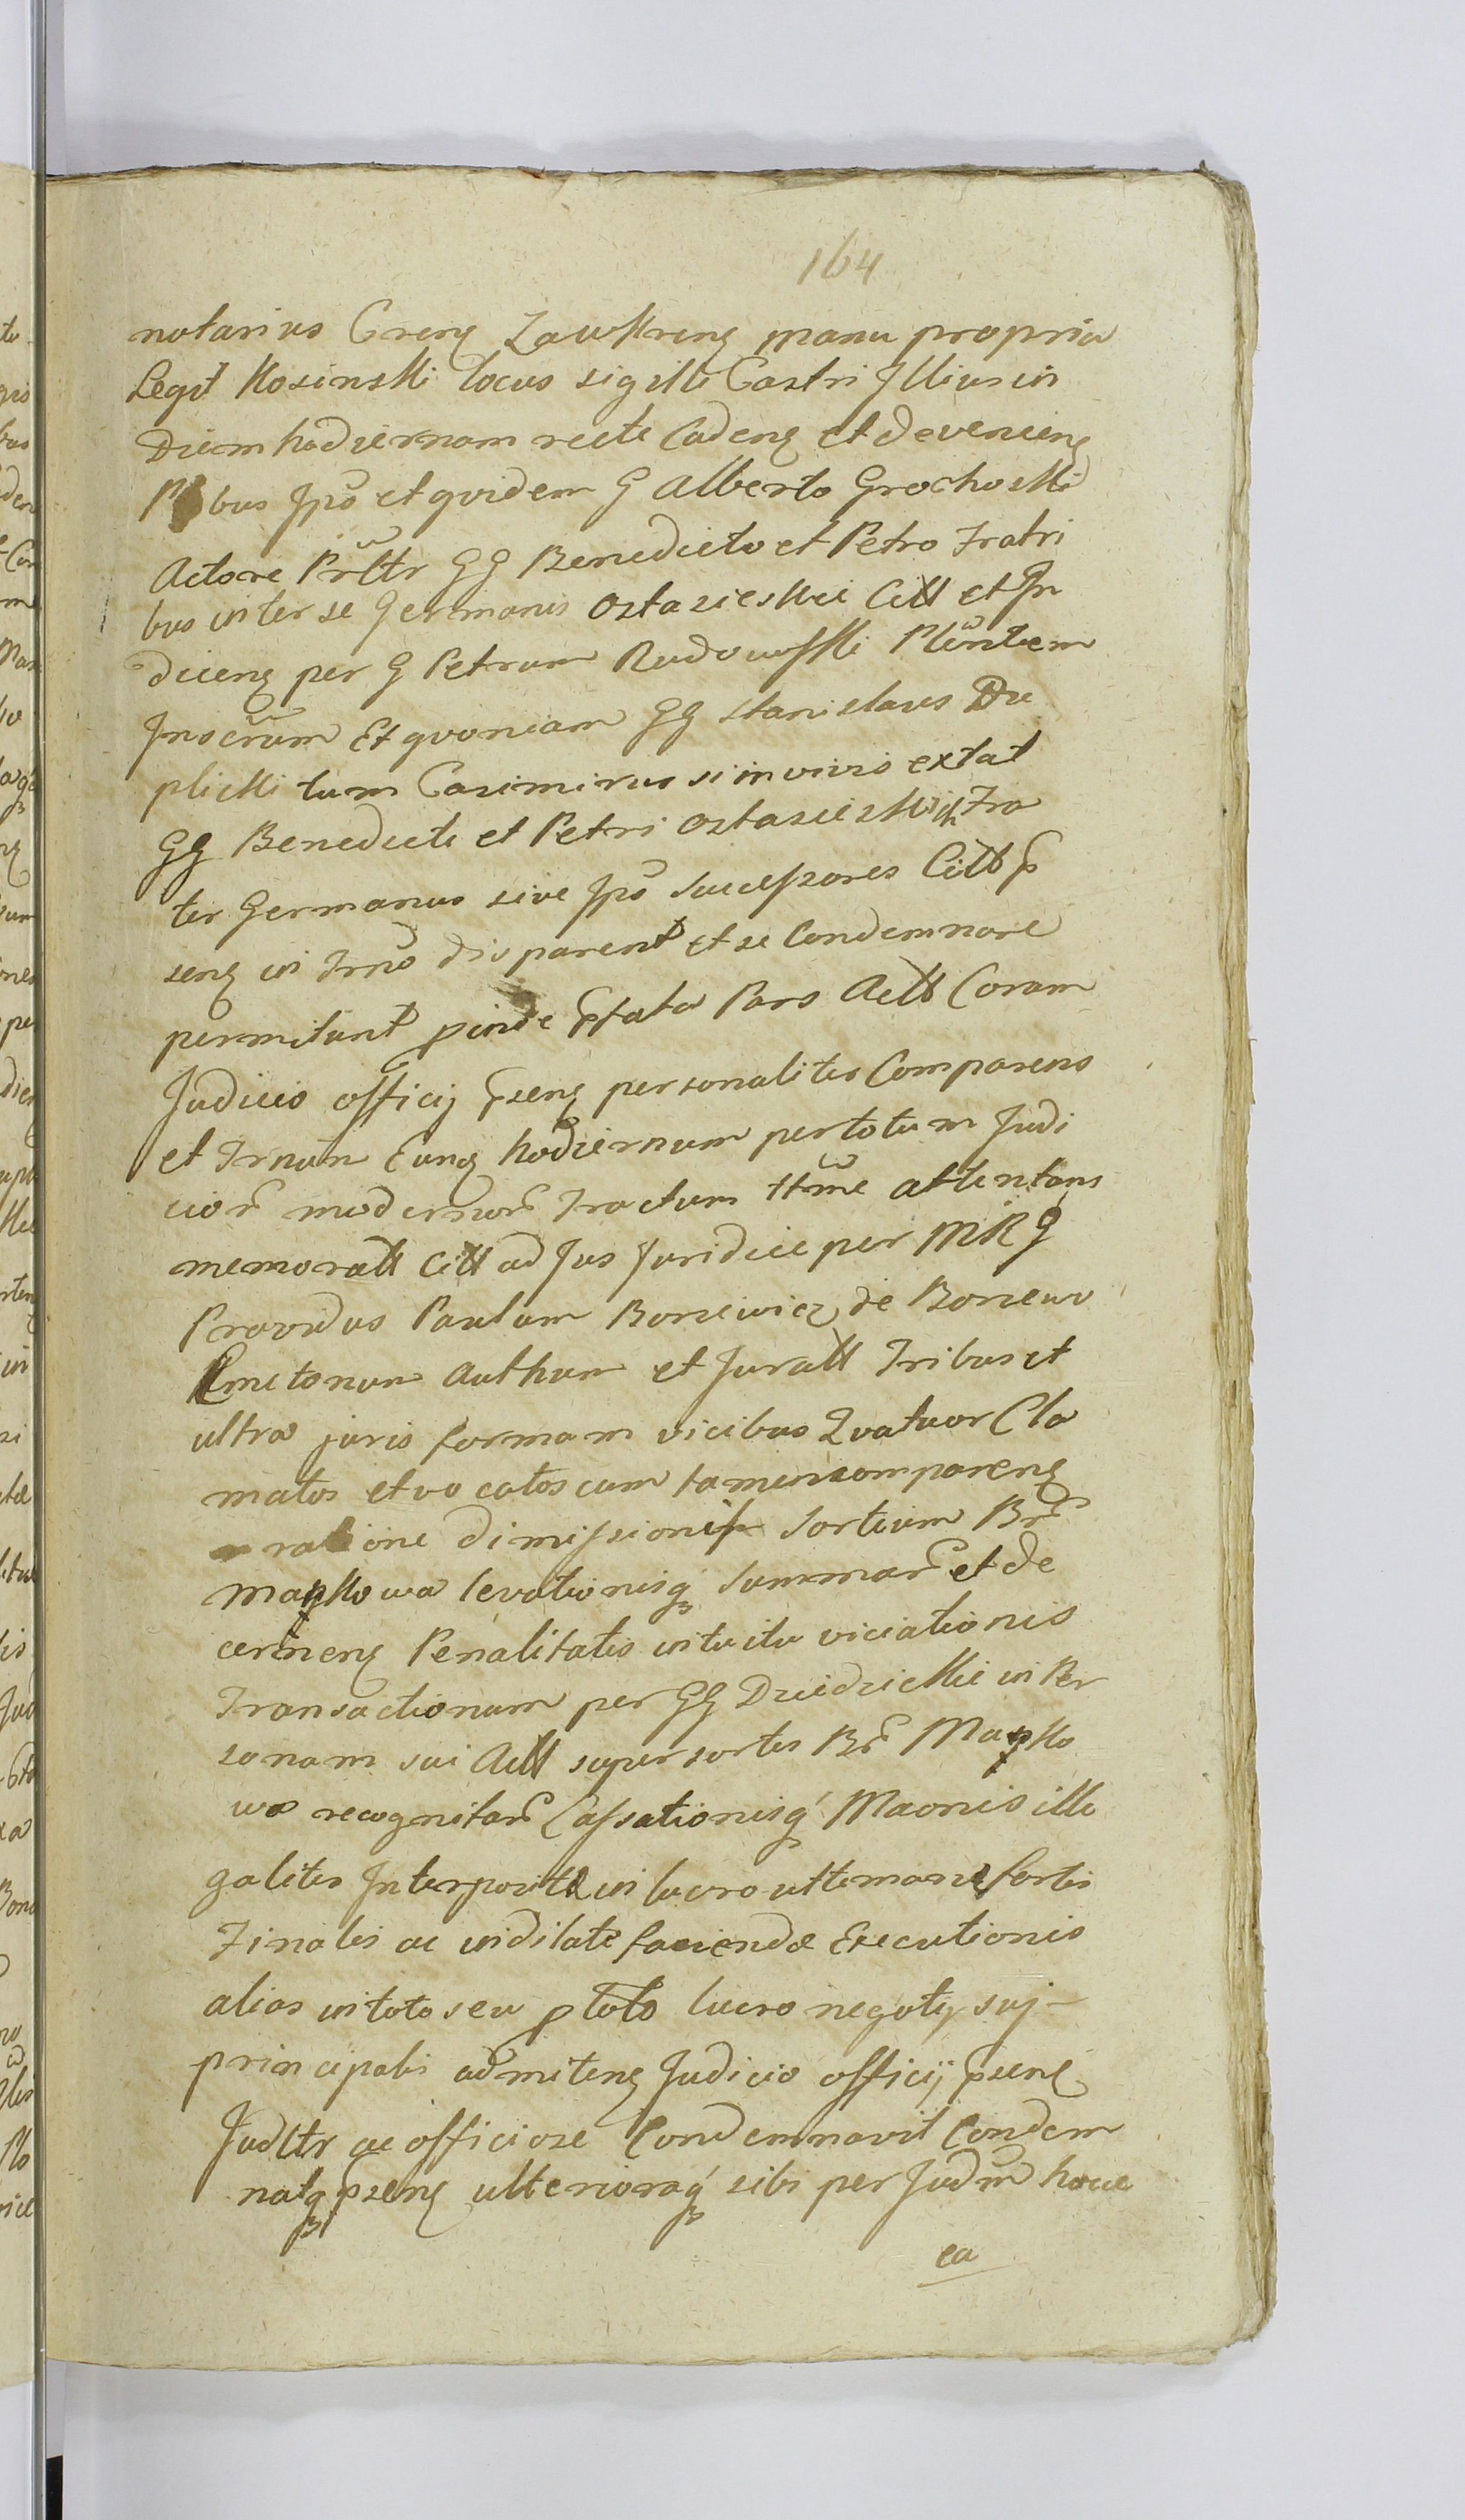 164
notarius Cren̄ Zawkren̄ manu propria
Legit Kosinski locus sigilli Castri Illius in
Diem hodiernam recte Caden̄ et devenien̄
bus Ipō et qvidem G Alberto Grochoski
Actore Prltr GG Benedicto et Petro Fratri
bus inter se Germanis Ostaszieskie Citt et In
dicen̄ per G Petrum Rudowski Plentem
Et qvoniam GG Stanislaus Du
plicki tum Casimirus si in vivis extat
GG Benedicti et Petri Ostasieskich Fra
ter Germanus sive Ipō Sucessores Citt p
sen̄ in Trnō disparent et se Condemnare
permitunt pinde pfata Pars Actt Coram
Judicio officij psen̄ personaliter Comparens
et Trnūm Eunq hodiernum per totum Judi
cior modernor Tractum ttme attentans
memoratt Citt ad Jus Juridice per MRG
Providus Paulum Boniewicz de
Kmetonum Authum et Juratt Tribus et
ultra juris formam vicibus Qvatuor Cla
matos et vocatos cum tamen comparen̄
ratione dimissionis Sortium Br
Mazkowa levationisq Summar et de
cernen̄ Penalitatis intuitu viciationis
Transactionum per GG Dziedzickie in Per
sonam sui Actt super sortes Br Mazko
wa recognitar Cassationisq Maonis ille
galiter Interposit in lucro ultimar sortis
Finalis ac indilate faciendæ Executionis
alias in toto seu ptoto lucro negotij suj
principali admiten̄ Judicio officij psen̄
Judltr ac officiose Condemnavit Condem
natq psen̄ ulterioraq sibi per Judm hocce
ea